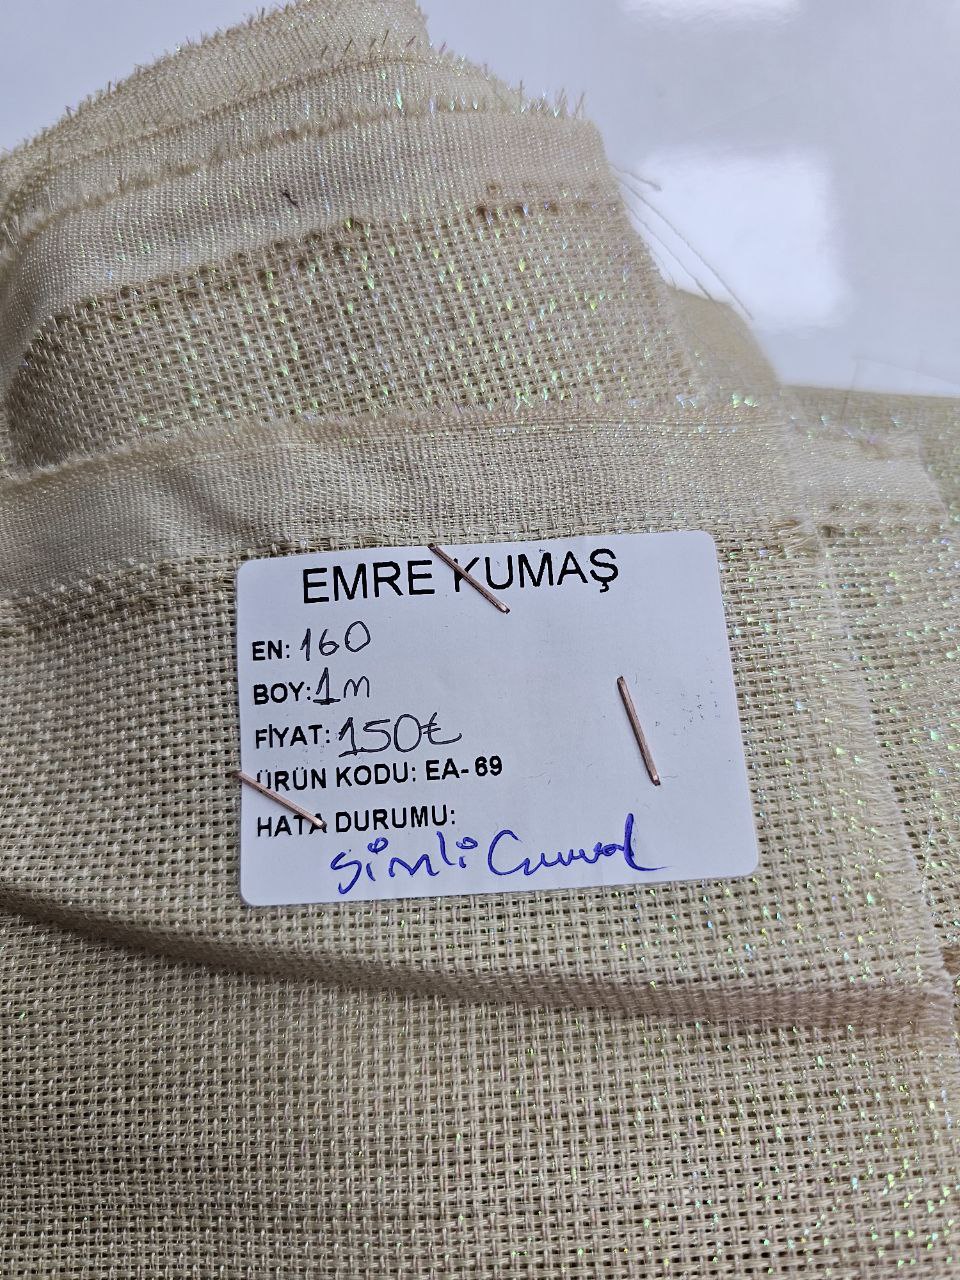 EMRE KUMAŞ
EN: 160
BOY: 1m
FİYAT: 150₺
ÜRÜN KODU: EA-69
HATA DURUMU:
Simli Cuval